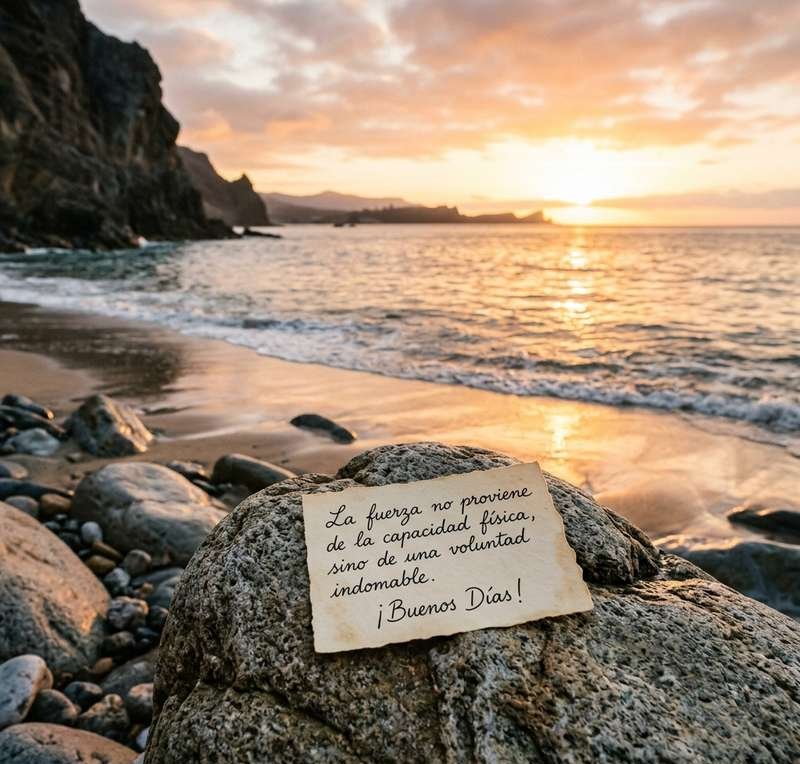 La fuerza no proviene
de la capacidad física,
sino de una voluntad
indomable.
¡Buenos Días!